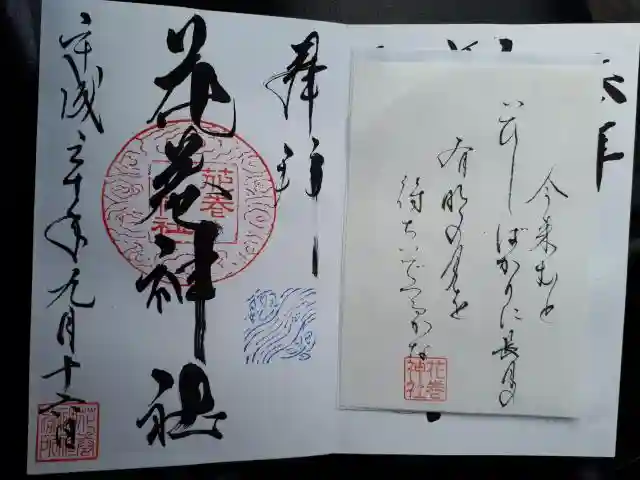 今来むと
いひしばかりに長月の
有明の月を
待ちいでつるかな
花巻神社
奉拝
花巻神社
花巻神社
平成三十年九月十六日